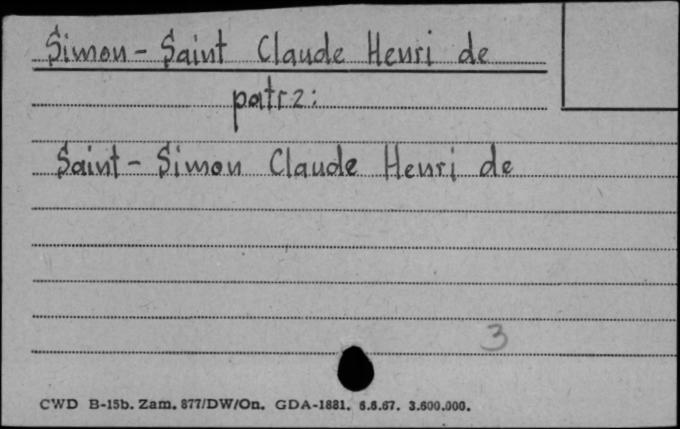 Simon - Saint Claude Henri de
patrz:
Saint - Simon Claude Henri de
3
CWD B-15b. Zam. 877/DW/On. GDA-1881. 6.6.67. 3.600.000.